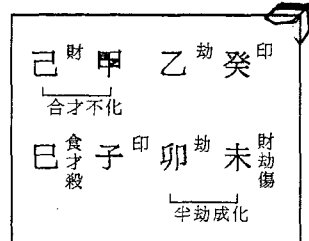 己財 甲 乙劫 癸印
合才不化
巳食才殺 子印 卯劫 未財劫傷
半劫成化